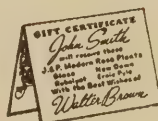 GIFT CERTIFICATE
John Smith
will receive these
J.&P. Modern Rose Plants
New Dawn
With the Best Wishes of
Walter Brown